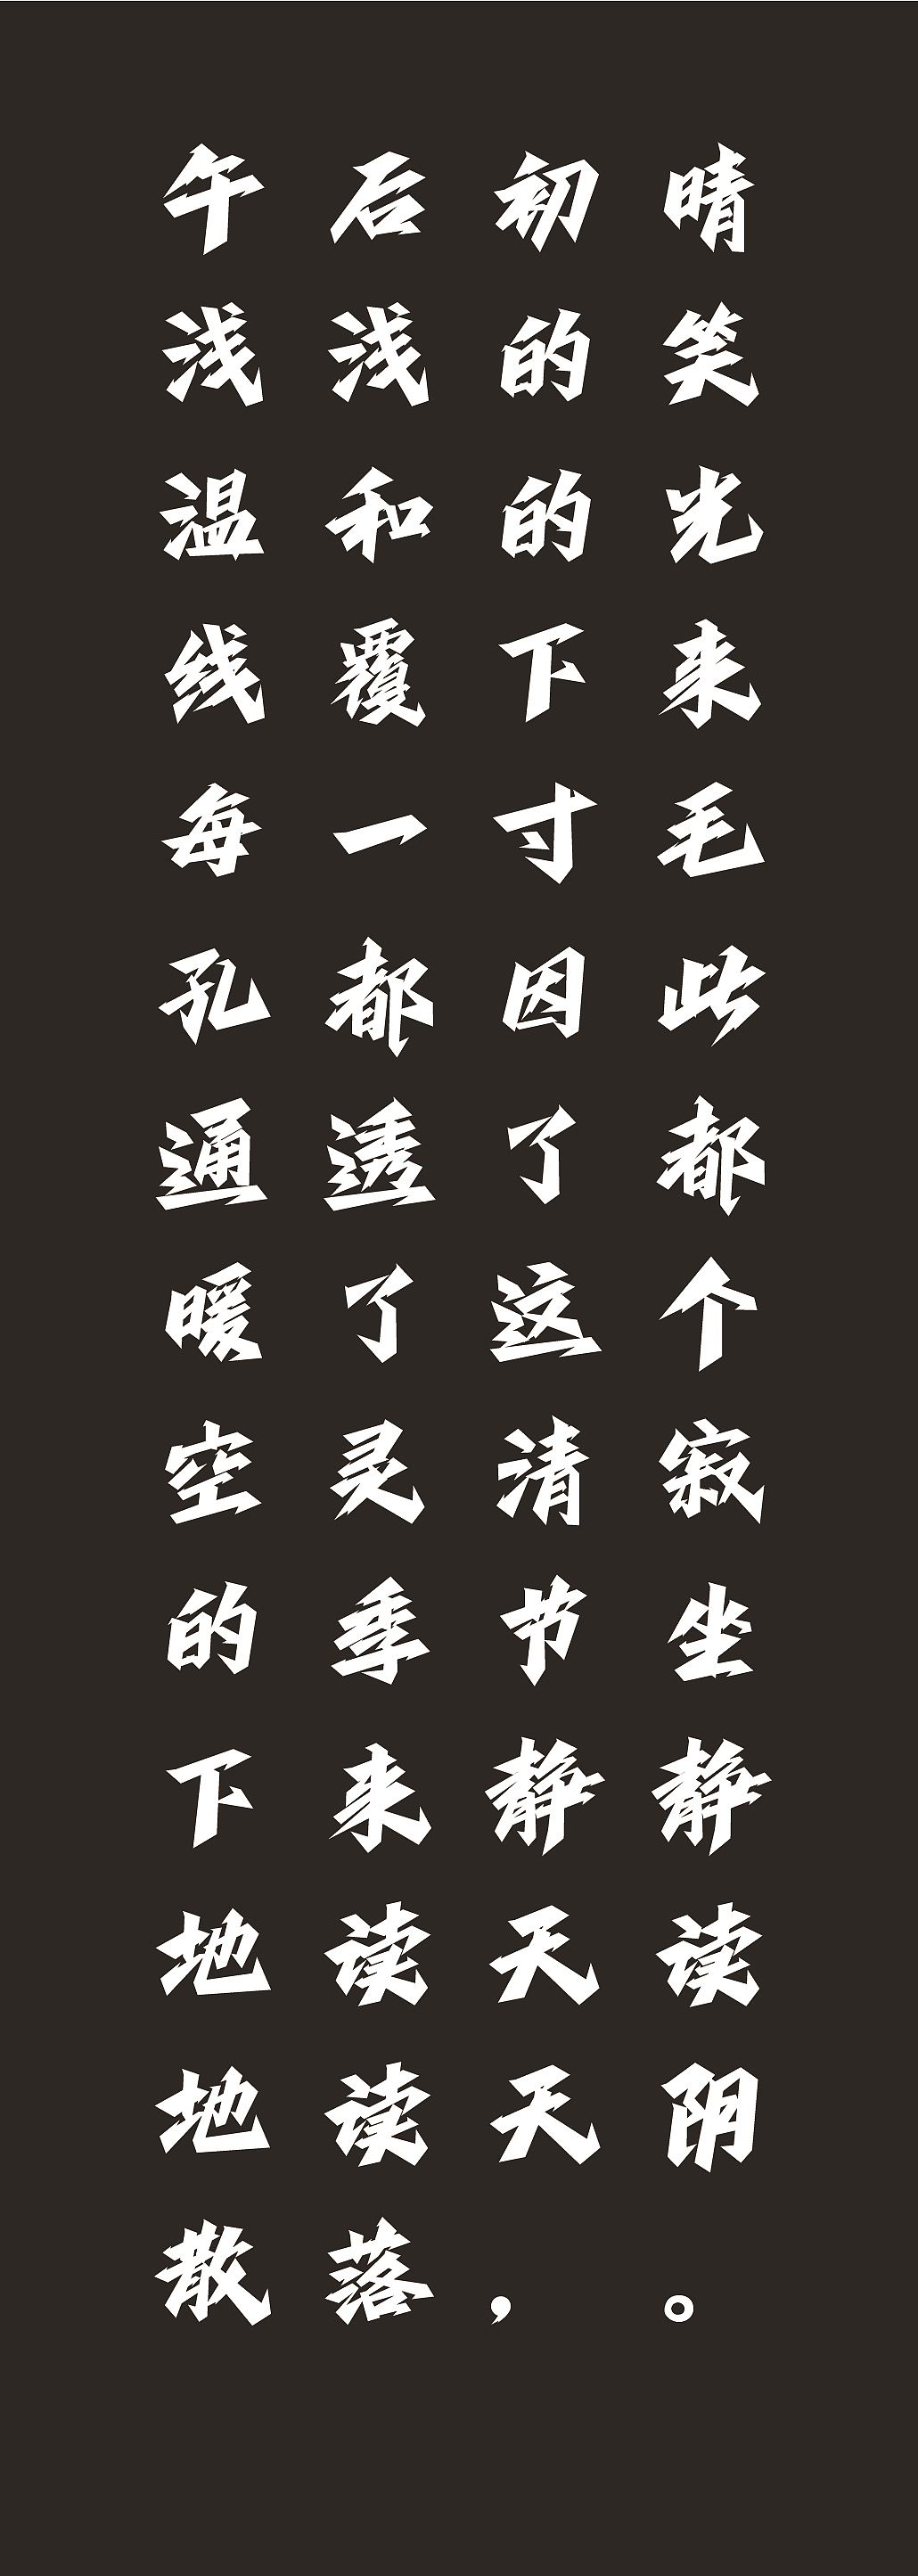 午后初晴
浅浅的笑
温和的光
线覆下来
每一寸毛
孔都因此
通透了都
暖了这个
空灵清寂
的季节坐
下来静静
地读天读
地读天阴
散落，。